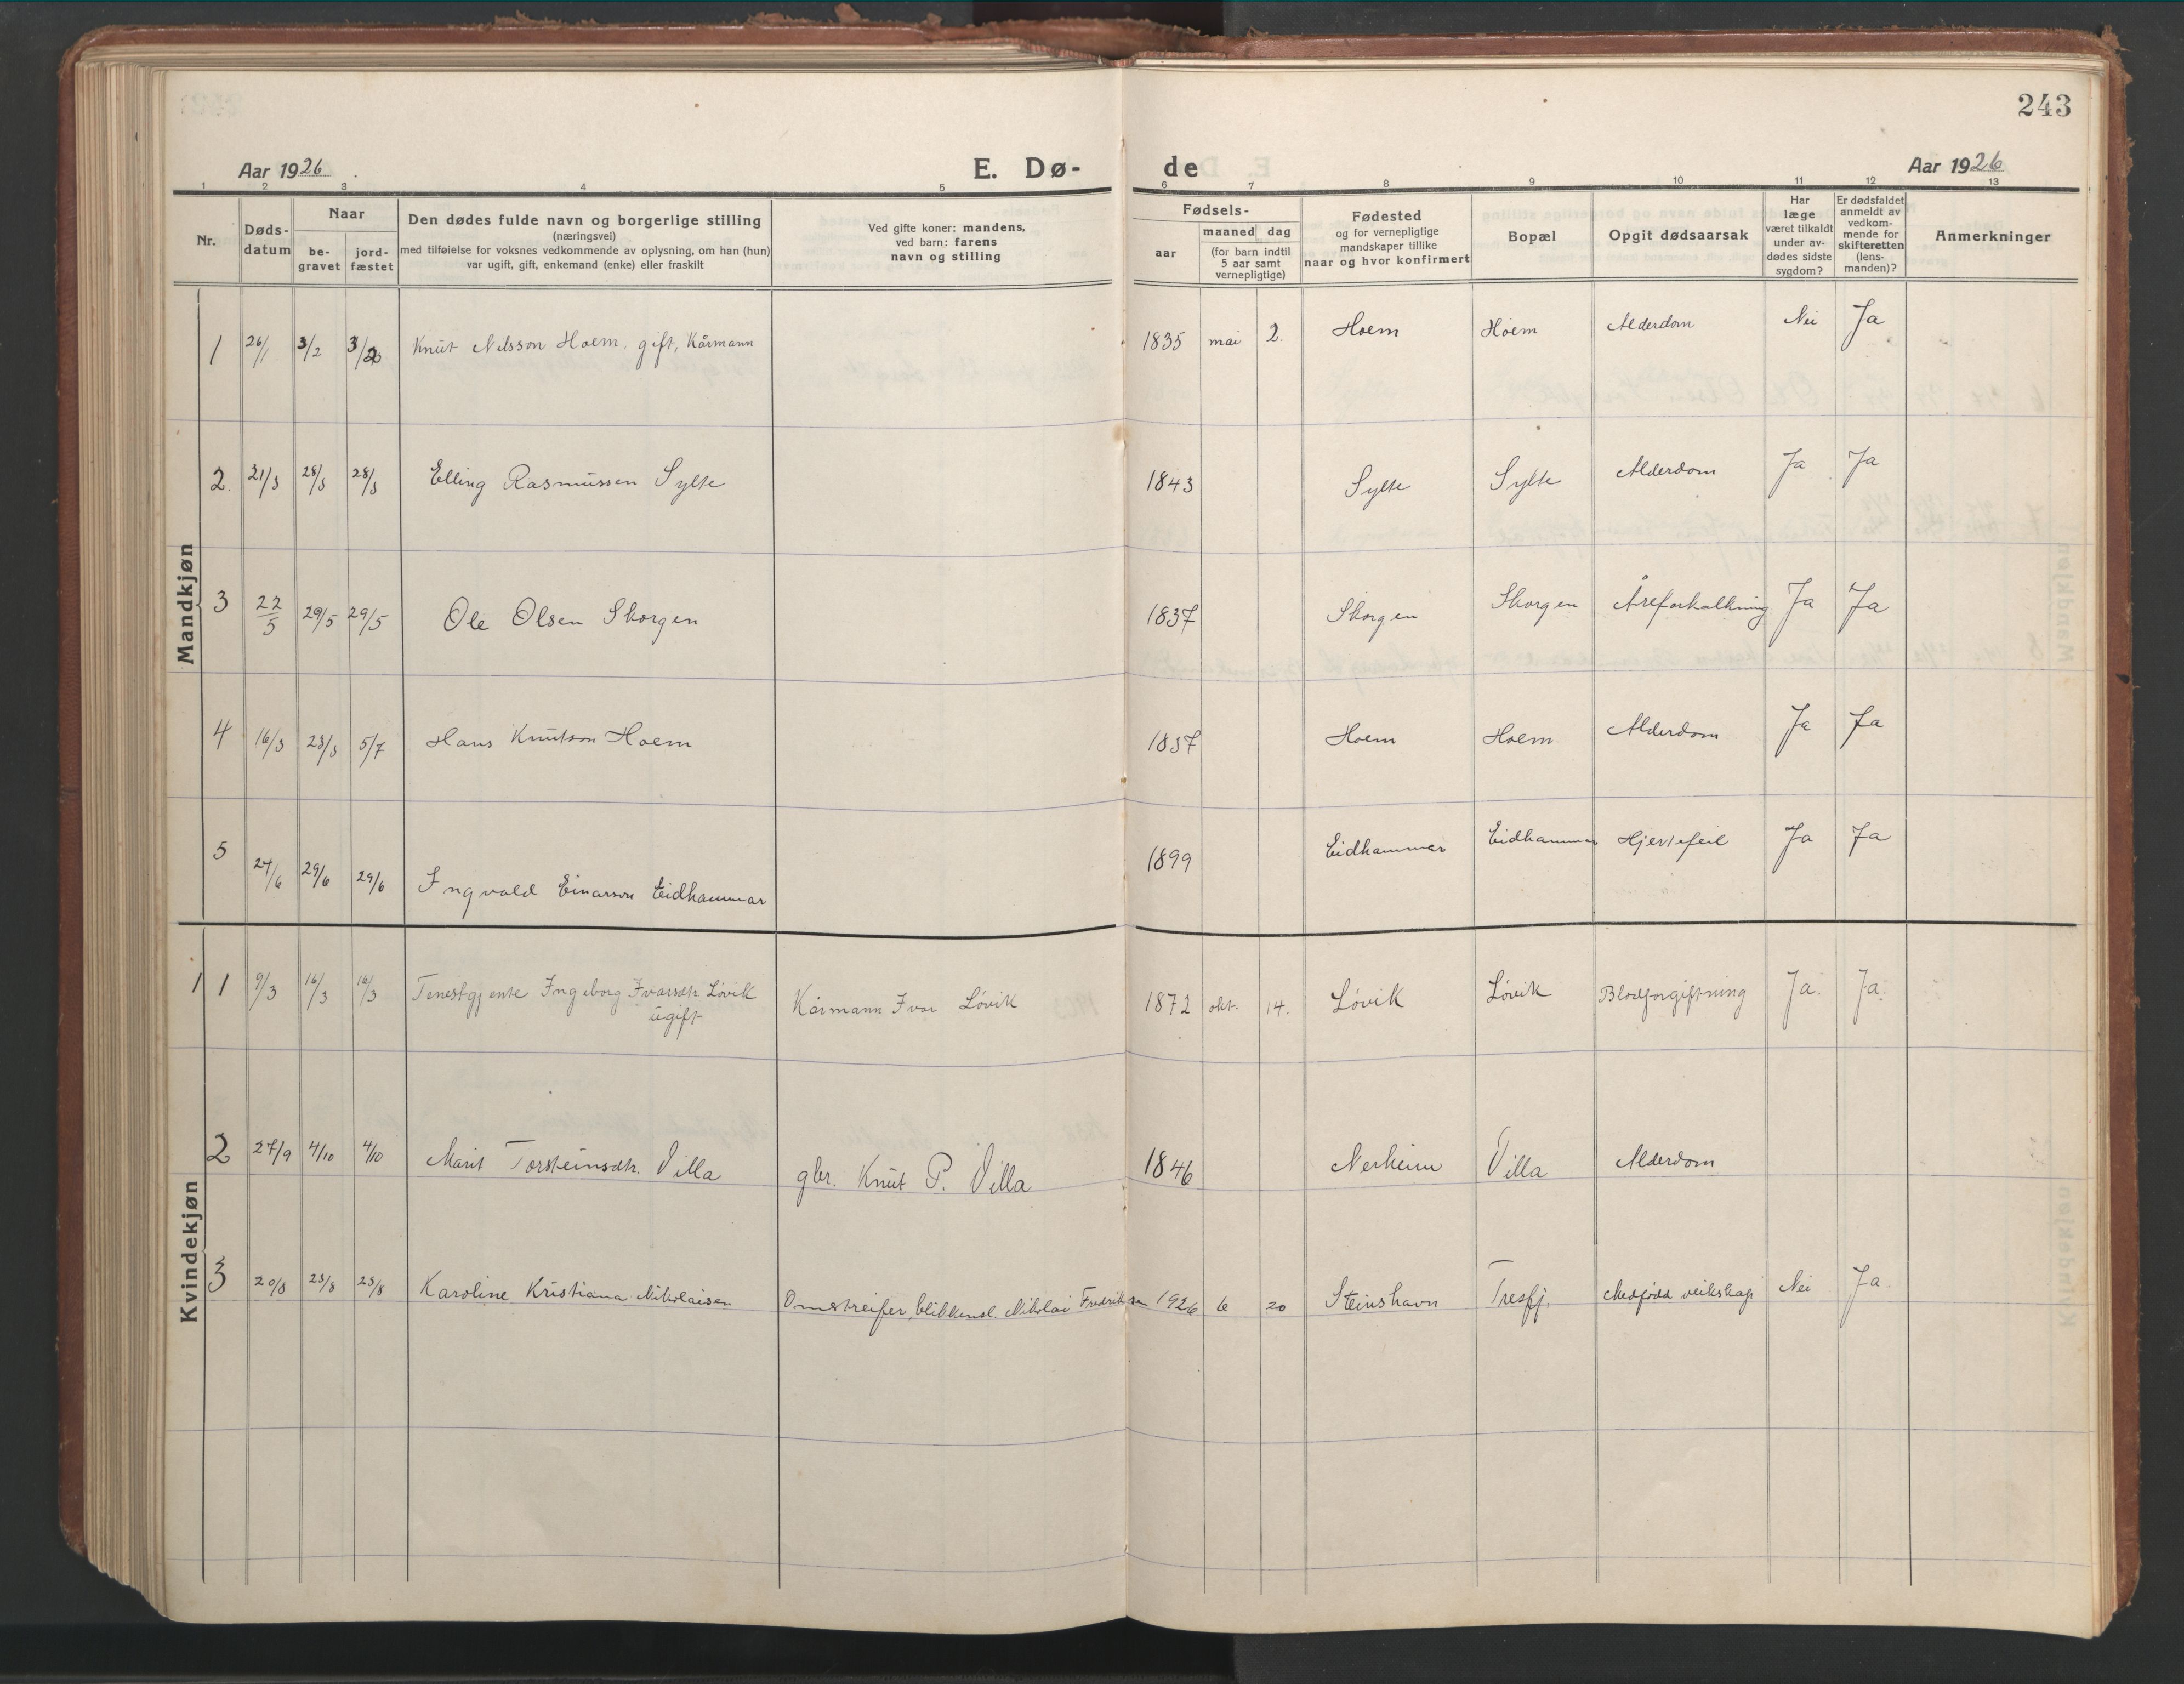 243
Aar 1926
E. Dø-
de
Aar 1926
1 2 3 4 5 6 7 8 9 10 11 12 13
Nr.
Døds-
datum
Naar
be-
gravet
jord-
fæstet
Den dødes fulde navn og borgerlige stilling
(næringsvei)
med tilføielse for voksnes vedkommende av oplysning, om han (hun)
var ugift, gift, enkemand (enke) eller fraskilt
Ved gifte koner: mandens,
ved barn: farens
navn og stilling
Fødsels-
aar
maaned dag
(for barn indtil
5 aar samt
vernepligtige)
Fødested
og for vernepligtige
mandskaper tillike
naar og hvor konfirmert
Bopæl
Opgit dødsaarsak
Har
læge
været tilkaldt
under av-
dødes sidste
sygdom?
Er dødsfaldet
anmeldt av
vedkom-
mende for
skifteretten
(lens-
manden)?
Anmerkninger
Mandkjøn
1 26/1 3/2 3/2 Knut Nilsson Hoem, gift, Kårmann 1835 mai 2. Hoem Hoem Alderdom Nei Ja
2. 21/3 28/3 28/3 Elling Rasmussen Sylte 1843 Sylte Sylte Alderdom Ja Ja
3 22/5 29/5 29/5 Ole Olsen Skorgen 1837 Skorgen Skorgen Åreforkalkning Ja Ja
4 16/3 23/3 5/7 Hans Knutson Hoem 1837 Hoem Hoem Alderdom Ja Ja
5 24/6 29/6 29/6 Ingvald Einarson Eidhammar 1899 Eidhammar Eidhammar Hjertefeil Ja Ja
Kvindekjøn
1 1 9/3 16/3 16/3 Tenestgjente Ingeborg Ivarsdtr Løvik Kårmann Ivar Løvik 1872 okt. 14. Løvik Løvik Blodforgiftning Ja. Ja.
ugift
2 27/9 4/10 4/10 Marit Torsteinsdtr. Villa gbr. Knut P. Villa 1846 Nerheim Villa Alderdom
3 20/8 23/8 23/8 Karoline Kristiana Nikolaisen Omstreifer, blikkensl. Nikolai Fredriksen 1926 6 20 Steinshavn Tresfj. Medfødd veikskap Nei Ja.